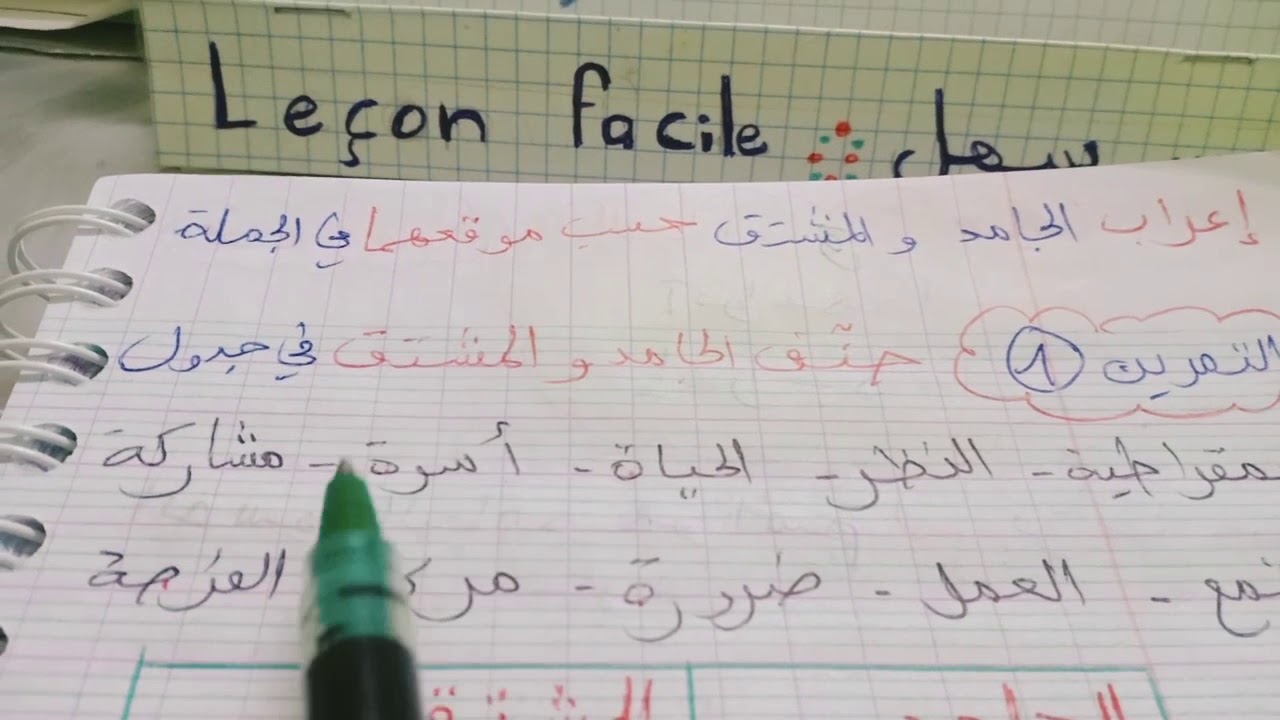 Leçon facile سهل
إعراب الجامد و المشتق حسب موقعهما في الجملة
التمرين 1 صنّف الجامد و المشتق في جدول
مقراطية - النظر - الحياة - أسرة - مشاركة
العمل - ضرورة - الفرصة